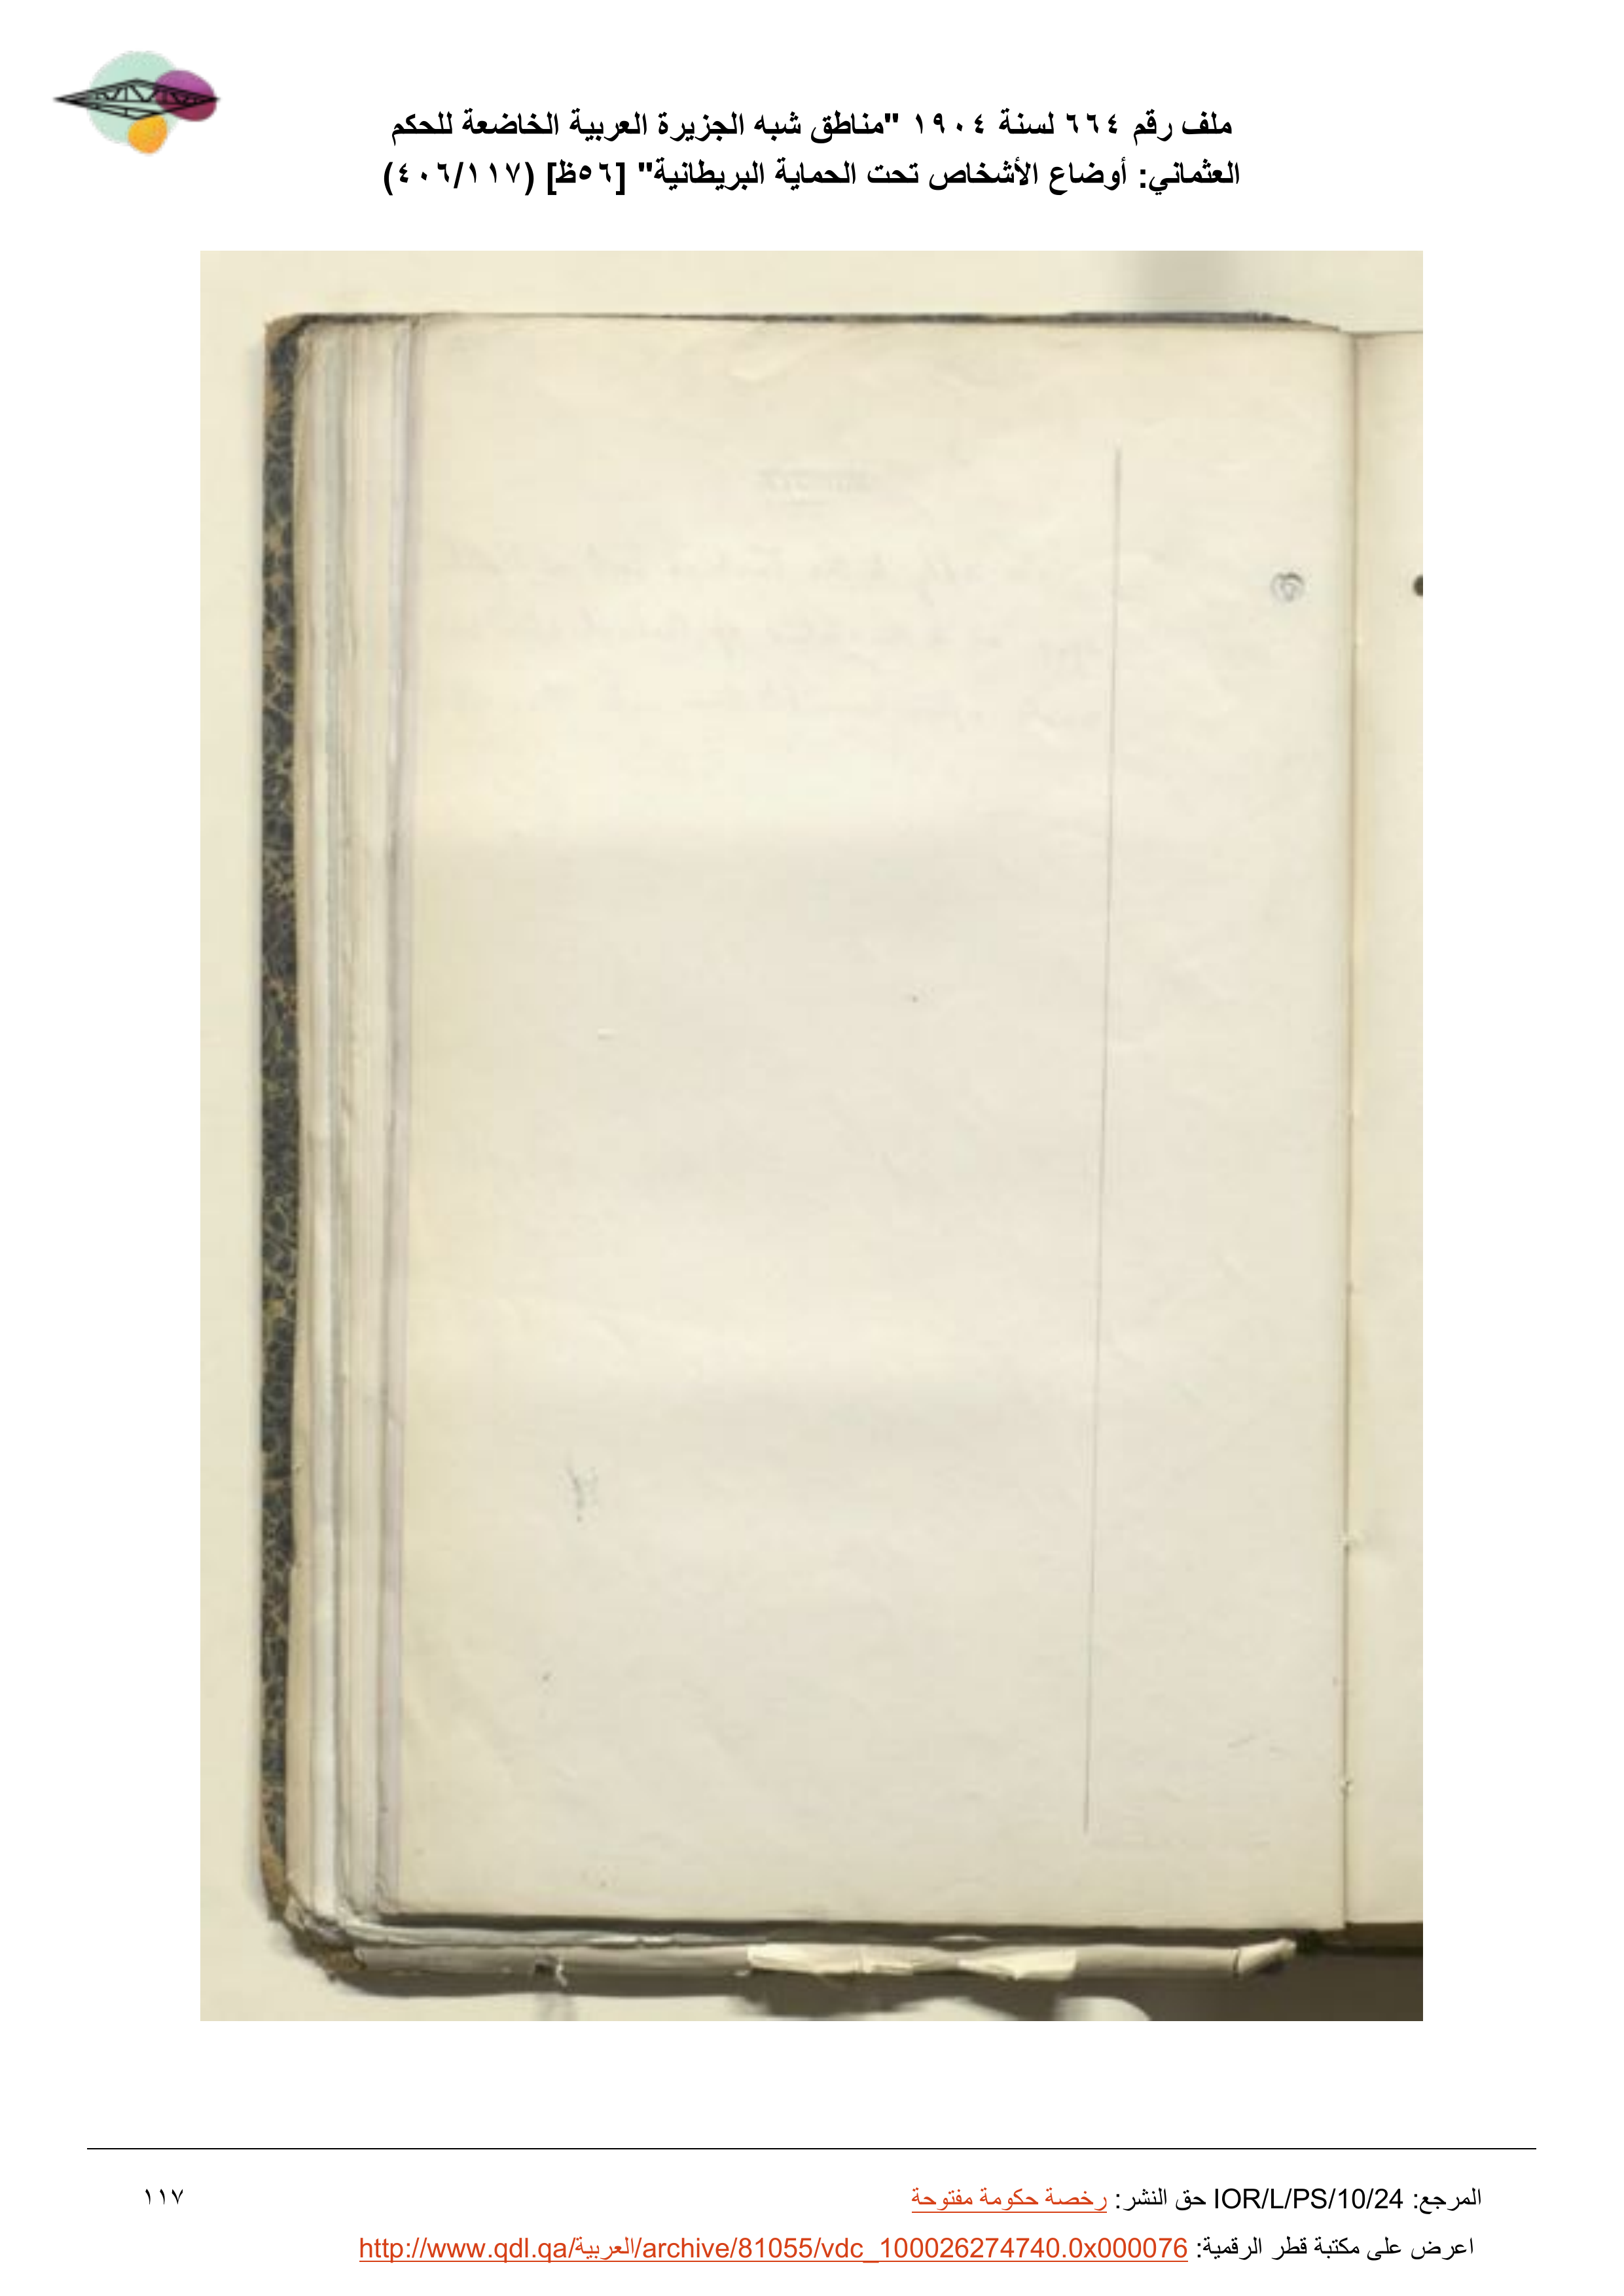 ملف رقم ٦٦٤ لسنة ١٩٠٤ "مناطق شبه الجزيرة العربية الخاضعة للحكم
العثماني: أوضاع الأشخاص تحت الحماية البريطانية" [٥٦ظ] (٤٠٦/١١٧)
المرجع: IOR/L/PS/10/24 حق النشر: رخصة حكومة مفتوحة
١١٧
اعرض على مكتبة قطر الرقمية: http://www.qdl.qa/العربية/archive/81055/vdc_100026274740.0x000076